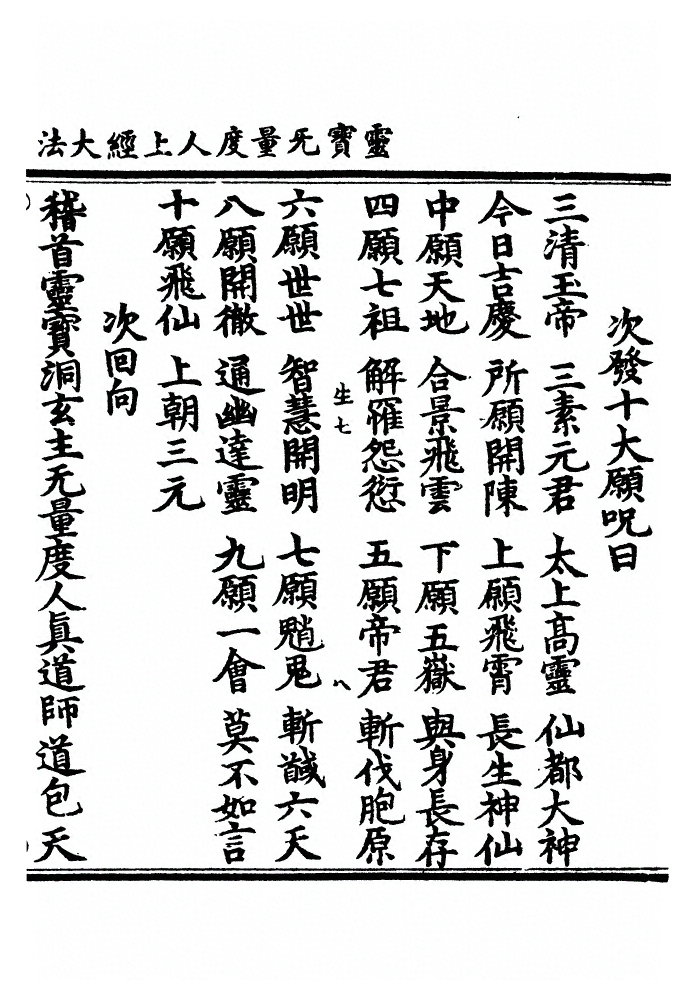 靈寶无量度人上經大法
次發十大願呪曰
三清玉帝　三素元君　太上高靈　仙都大神
今日吉慶　所願開陳　上願飛霄　長生神仙
中願天地　合景飛雲　下願五嶽　與身長存
四願七祖　解罹怨愆　五願帝君　斬伐胞原
生七
六願世世　智慧開明　七願魈鬼　斬馘六天
八願開徹　通幽達靈　九願一會　莫不如言
十願飛仙　上朝三元
次回向
稽首靈寶洞玄主无量度人眞道師道包天